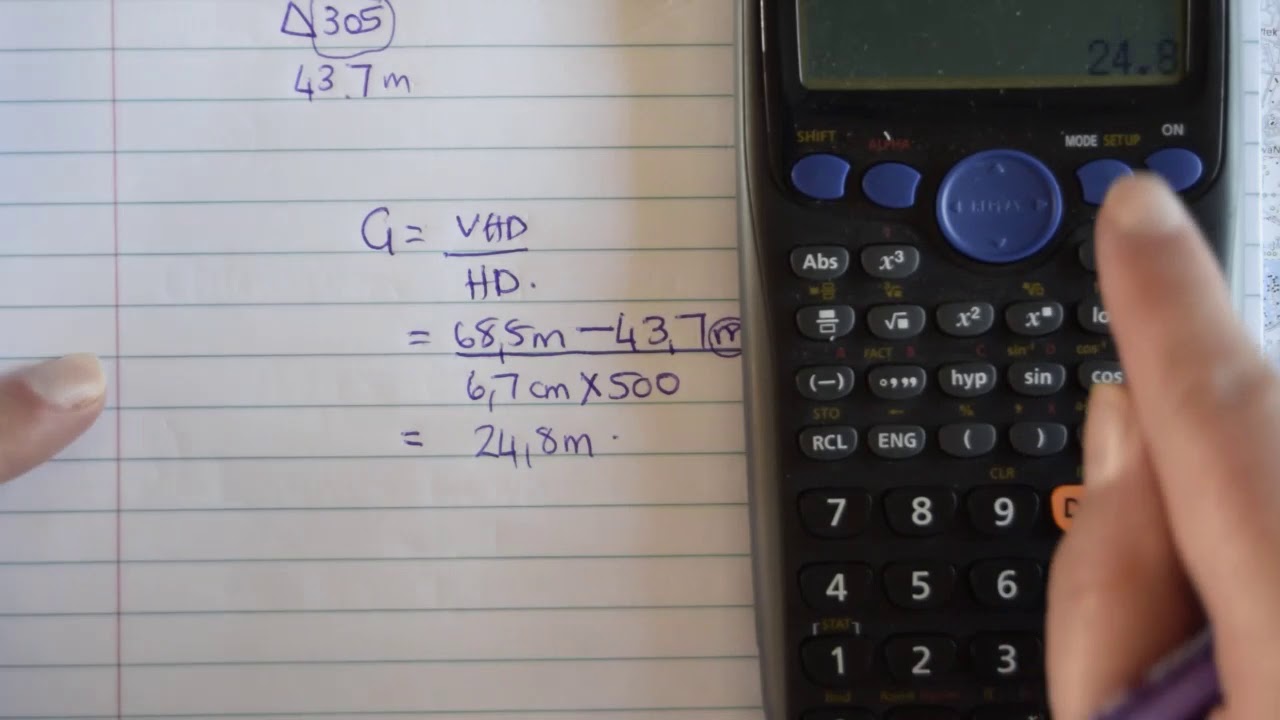 △305
43.7m
G = VHD
HD.
= 68,5m - 43,7m
6,7cm x 500
= 24,8m.
24.8
SHIFT ALPHA MODE SETUP ON
REPLAY
Abs x³
√ x² x
FACT sin⁻¹ cos⁻¹
(−) °,,, hyp sin cos
STO
RCL ENG ( )
CLR
7 8 9
4 5 6
STAT
1 2 3